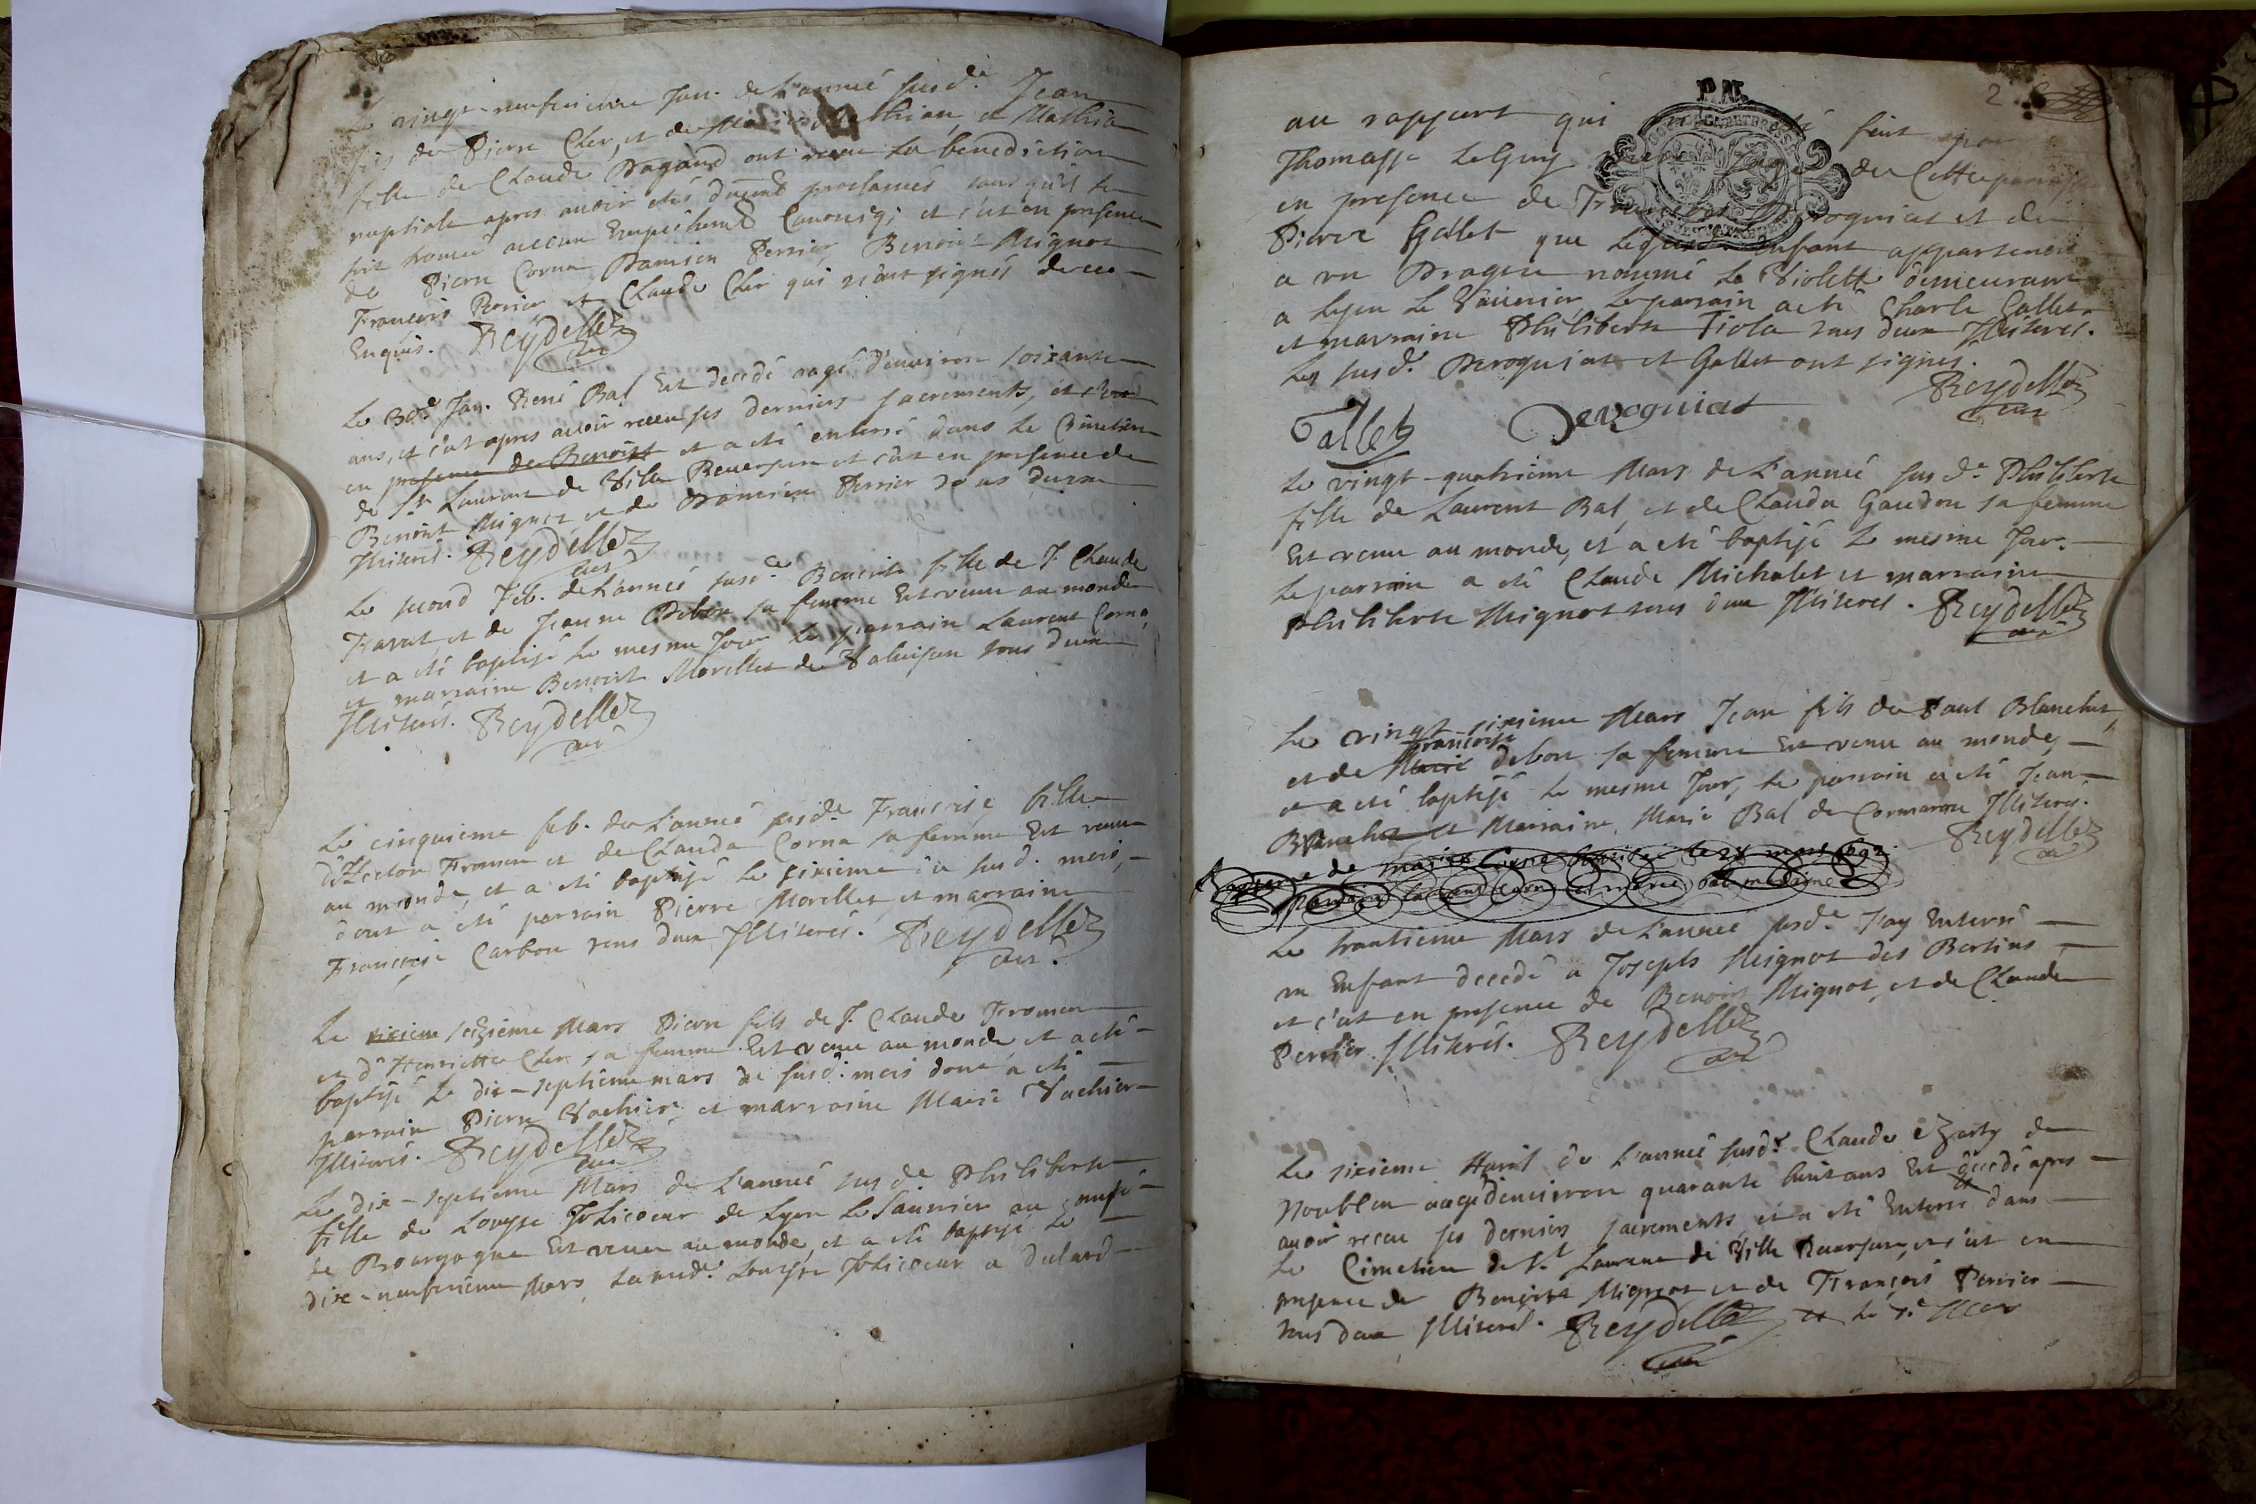 Le vingt-neufvieme Jan. de L'année susd.e Jean
fils de Pierre Cler, et de et Mathia
fille de Claude Dagand ont receu La benediction
nuptiale apres avoir etés duemt proclamés sans qu'il se
soit trouvé aucun Empechemt Canoniq; et c'est en presence
de Pierre Corna Damien Perrier Benoist Mignot
François Perrier et Claude Cler qui n'ont signés de ce
Enquis. Reydellet
curé
Le 30e Jan. René Bal Est decedé aagé d'environ soixante
ans, et c'est apres avoir receu ses derniers sacrements, et
en presence de Benoist et a eté enterré dans Le Cimetiere
de St Laurent de Ville Reversure et c'est en presence de
Benoist Mignot et de Damien Perrier tous deux
Illiterés. Reydellet
curé
Le second feb. de L'année susd.e Benoiste fille de J. Claude
Favat et de Jeanne Debor sa femme Est venue au monde
et a eté baptisé Le mesme Jour Le parrain Laurent Corna
et marraine Benoist Morellet de tous deux
Illiterés. Reydellet
curé
Le cinquieme feb. de L'année susd.e Françoise fille
d'Hector Froment et de Clauda Corna sa femme Est venue
au monde, et a eté baptisé Le sixieme du susd. mois,
dont a eté parrain Pierre Morellet et marraine
Françoise Carbon tous deux Illiterés. Reydellet
curé.
Le sixieme seizieme Mars Pierre fils de J. Claude Froment
et d'Henriette Cler sa femme Est venu au monde et a eté
baptisé Le dix-septieme mars du susd. mois dont a eté
parrain Pierre Vachier et marraine Marie Vachier
Illiterés. Reydellet
curé
Le dix-septieme Mars de L'année susde Philiberte
fille de Louyse Jolicoeur de Lyon Le Saunier au
de Bourgogne Est venue au monde, et a eté baptisé Le
dix-neufvieme Mars Laditte Louyse Jolicoeur a
2
au rapport qui fait par
Thomasse de Cette paroisse
en presence de Deroguiat et de
Pierre Gallet que Enfant appartenoit
a un Dragon nommé Le Violette demeurant
a Lyon Le Saunier Le parrain a eté Charle Gallet
et marraine Philiberte Tiola tous deux Illiterés.
Les susd. Deroguiat et Gallet ont signés.
Reydellet
curé
Gallet Deroguiat
Le vingt-quatrieme Mars de L'année susd.e Philiberte
fille de Laurent Bal et de Clauda Gaudon sa femme
Est venue au monde, et a eté baptisé Le mesme Jour.
Le parrain a eté Claude Michalet et marraine
Philiberte Mignot tous deux Illiterés. Reydellet
curé
Le vingt-sixieme Mars Jean fils de Paul Blanchet,
françoise
et de Marie debor sa femme Est venu au monde,
et a eté baptisé Le mesme Jour, Le parrain a eté Jean
Blanchet et Marraine Marie Bal de Cormaron Illiterés.
Reydellet
curé
Le trantieme Mars de L'année susd.e J'ay Enterré
un Enfant decedé a Joseph Mignot des Bertins
et c'est en presence de Benoist Mignot et de Claude
Perrier Illiterés. Reydellet
curé
Le sixieme Avril de L'année susd.e Claude de
Noublen aagé d'environ quarante huit ans Est decedé apres
avoir receu ses derniers sacrements et a eté Enterré dans
Le Cimetiere de St Laurent de Ville Reversure, et c'est en
presence de Benoist Mignot et de François Perrier
tous deux Illiterés. Reydellet
curé